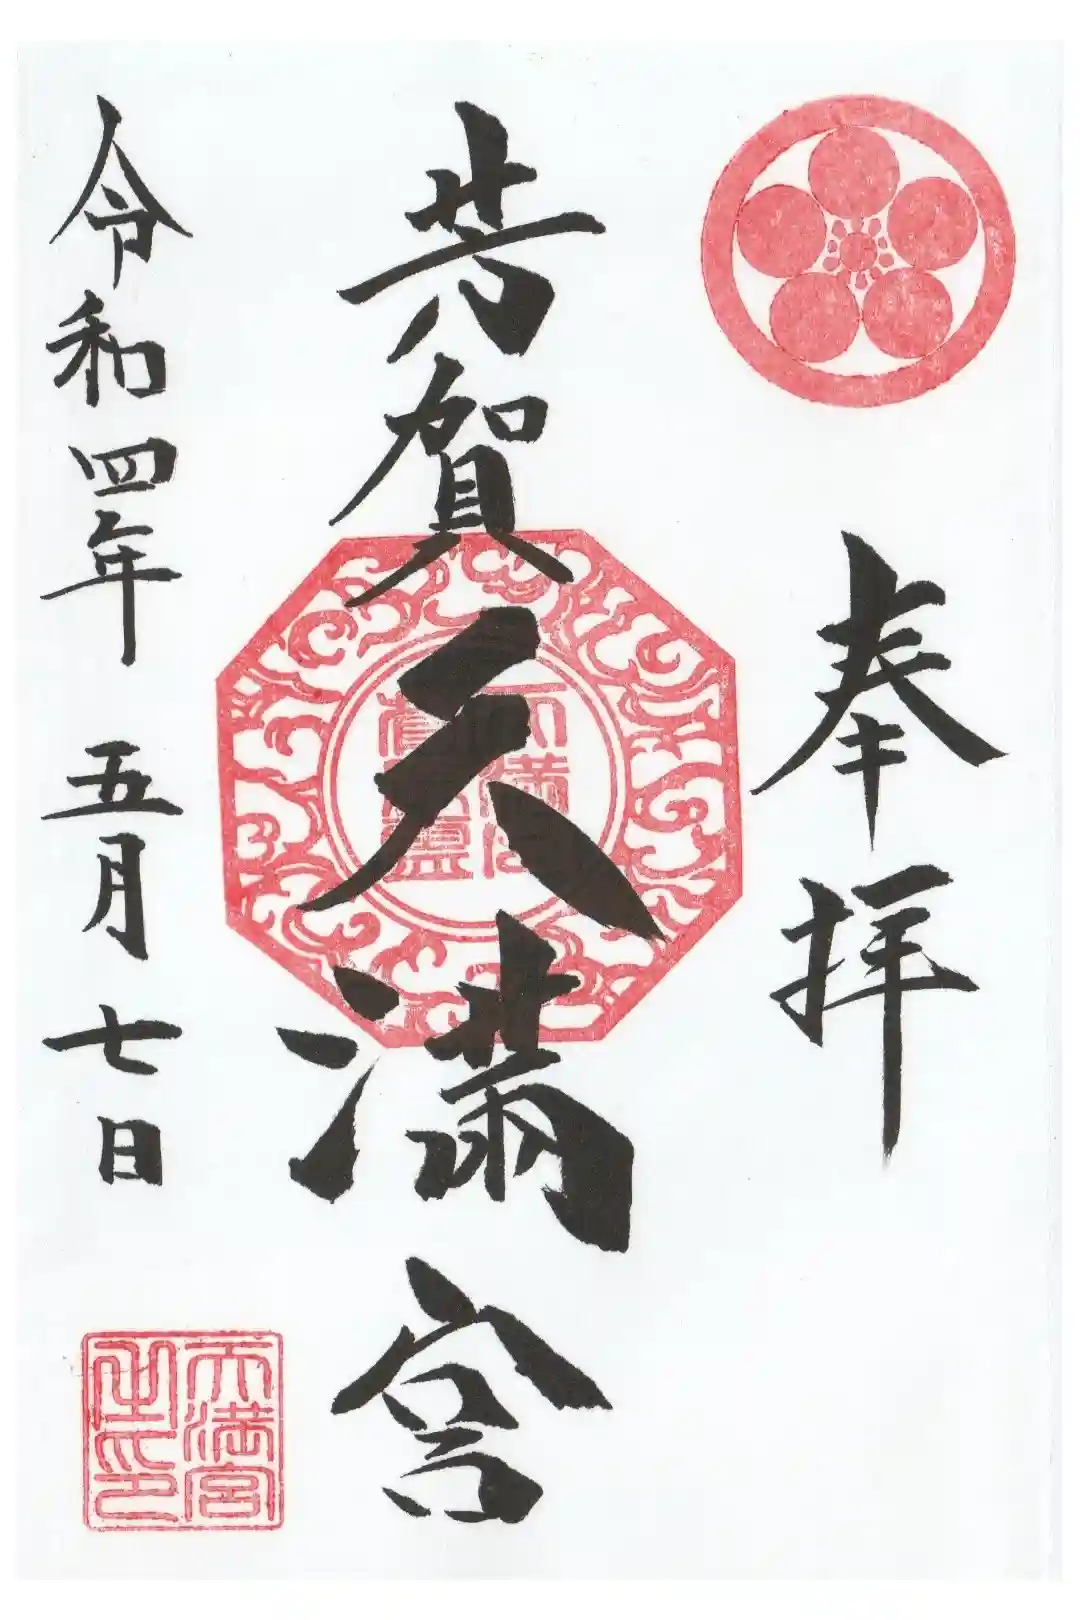 奉拝
芳賀天満宮
令和四年 五月 七日
天満宮
之印